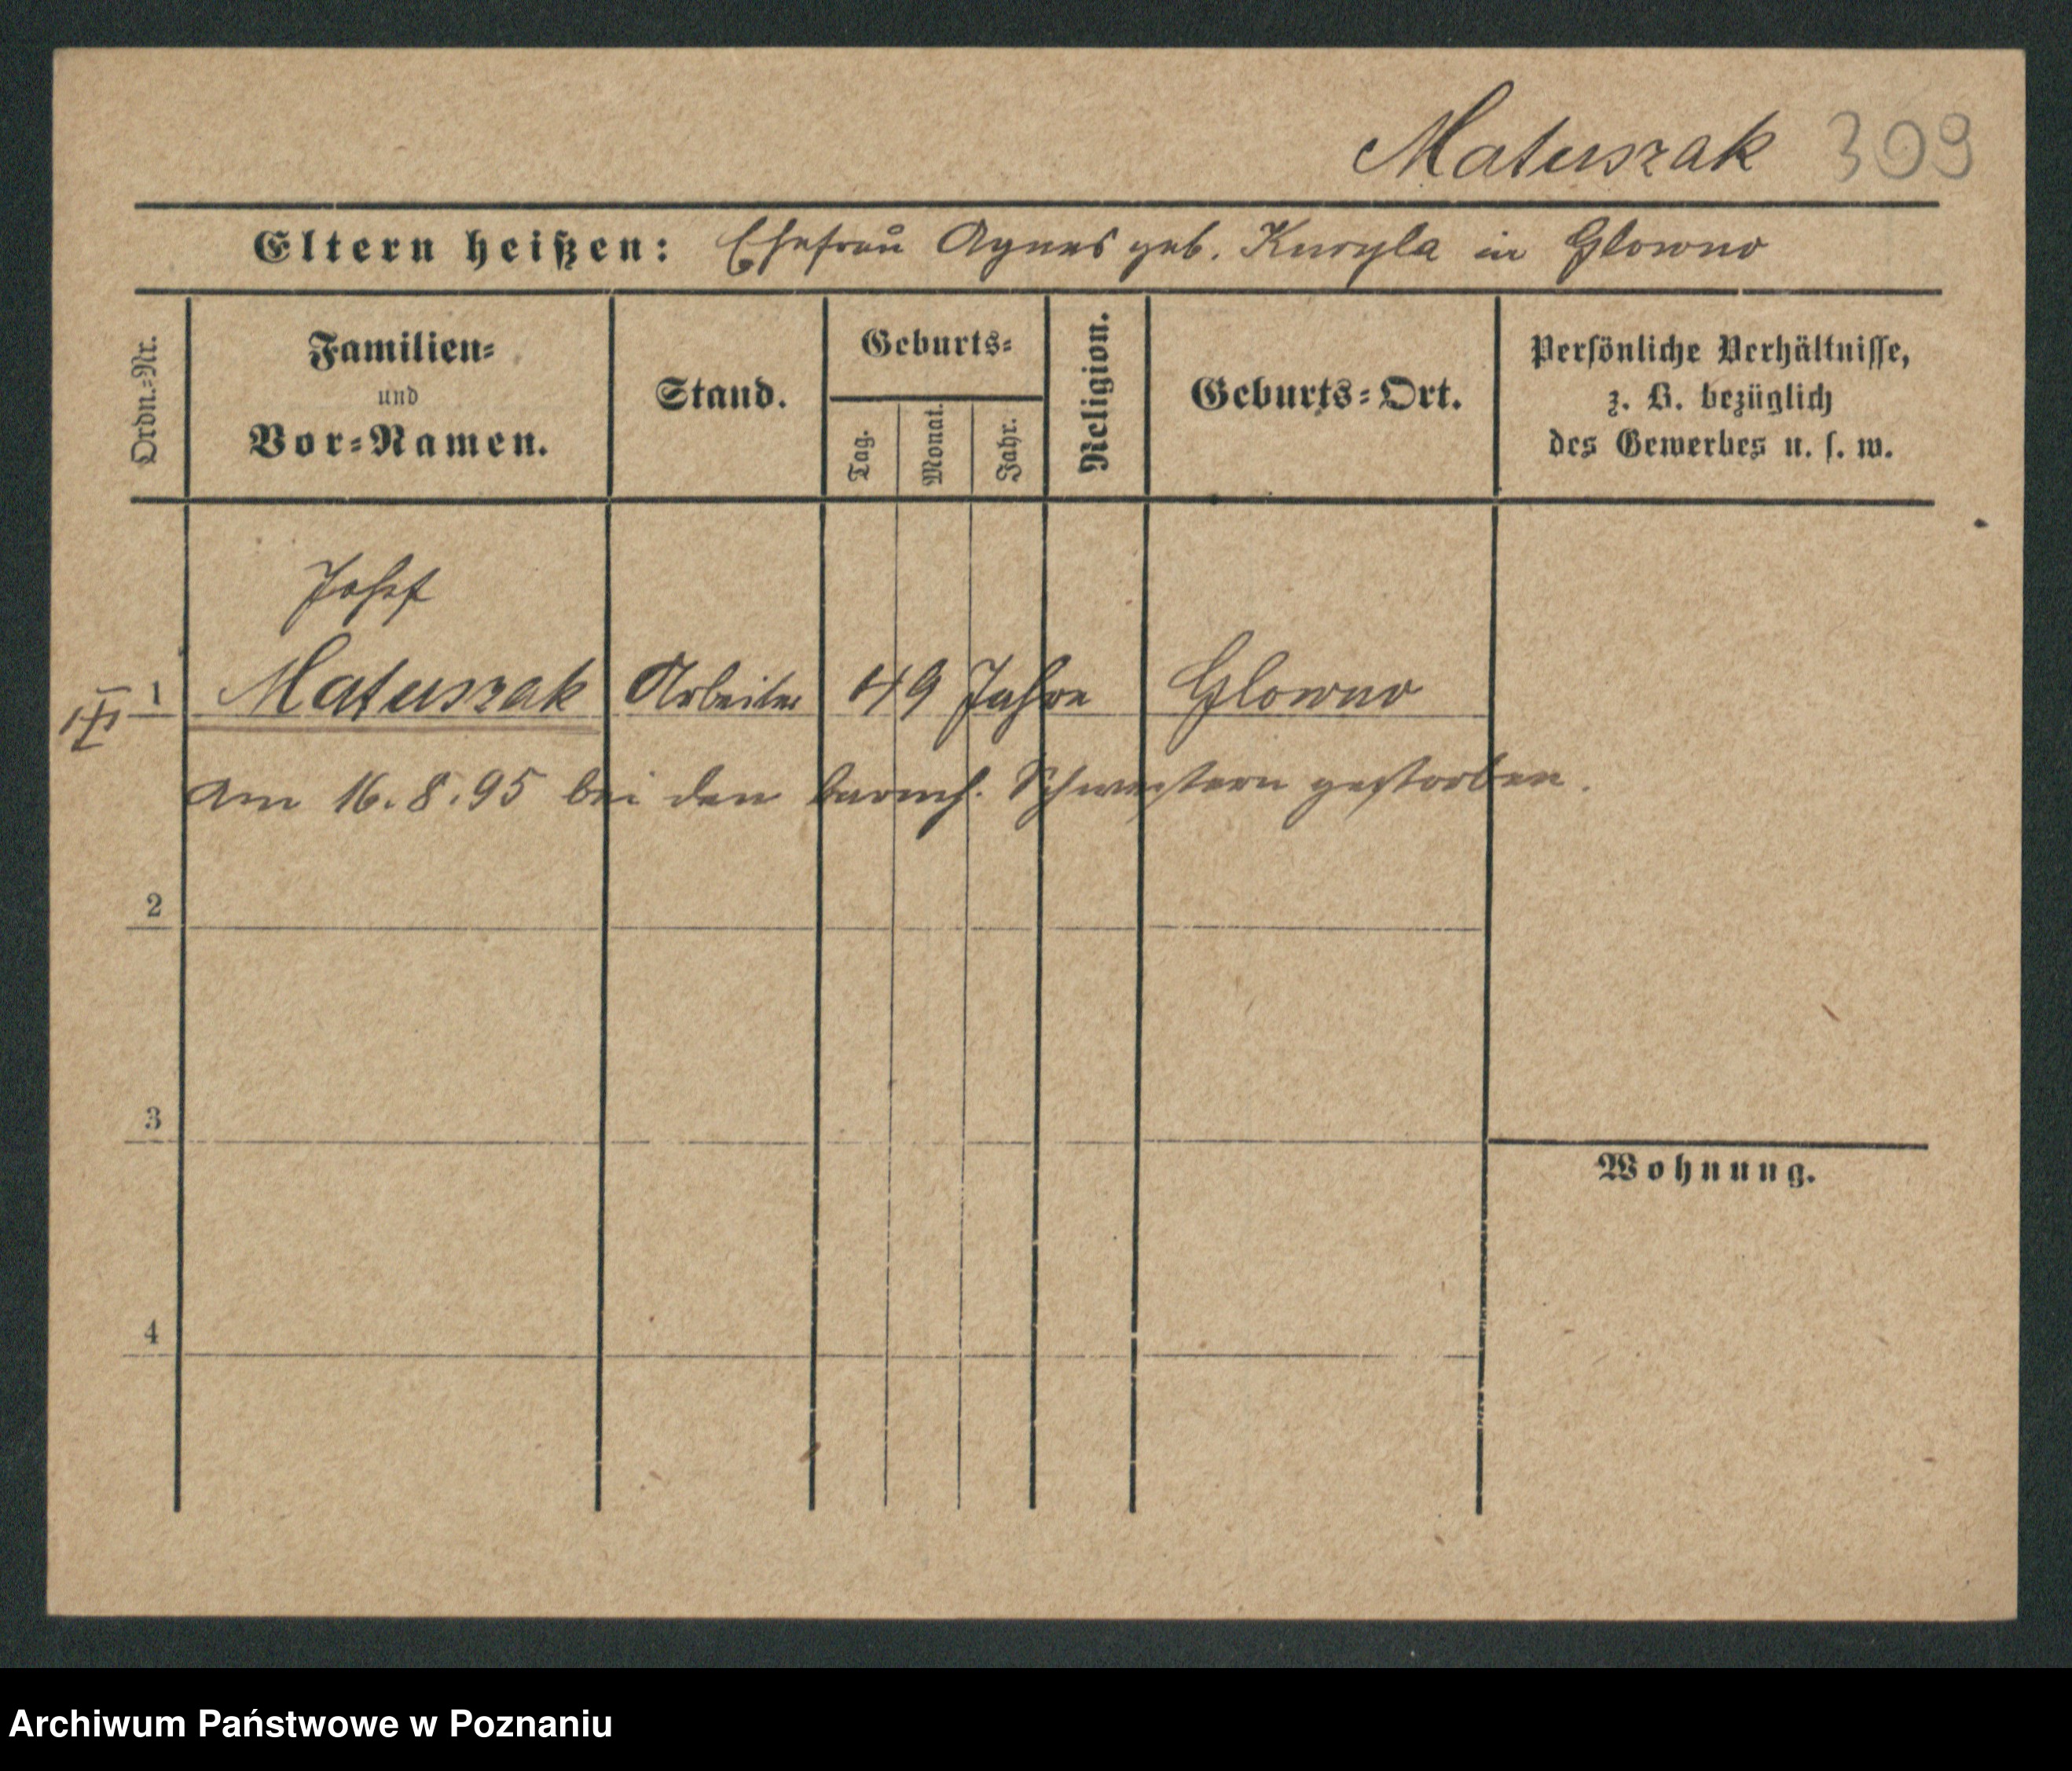 Matuszak 309
Eltern heißen: Ehefrau Agnes geb. Kuryla in Glowno
Ordn.-Nr.
Familien-
und
Vor-Namen.
Stand.
Geburts-
Tag.
Monat.
Jahr.
Religion.
Geburts-Ort.
Persönliche Verhältnisse,
z. B. bezüglich
des Gewerbes u. s. w.
Josef
1 Matuszak Arbeiter 49 Jahre Glowno
am 16.8.95 bei den barmh. Schwestern gestorben.
2
3
Wohnung.
4
Archiwum Państwowe w Poznaniu